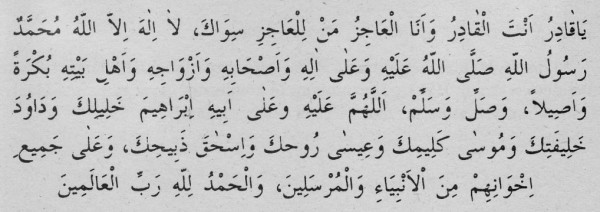 يَاقٰادِرُ اَنْتَ الْقٰادِرُ وَاَنَا الْعَاجِزُ مَنْ لِلْعَاجِزِ سِوَاكَ، لاٰ اِلٰهَ اِلاَّ اللّٰهُ مُحَمَّدٌ
رَسُولُ اللّٰهِ صَلَّى اللّٰهُ عَلَيْهِ وَعَلٰى اٰلِهِ وَاَصْحَابِهِ وَاَزْوَاجِهِ وَاَهْلِ بَيْتِهِ بُكْرَةً
وَاَصِيلاً، وَصَلِّ وَسَلِّمْ، اَللّٰهُمَّ عَلَيْهِ وعَلٰى اَبِيهِ اِبْرَاهِيمَ خَلِيلِكَ وَدَاوُدَ
خَلِيفَتِكَ وَمُوسٰى كَلِيمِكَ وَعِيسٰى رُوحِكَ وَاِسْحٰقَ ذَبِيحِكَ، وَعَلٰى جَمِيعِ
اِخْوَانِهِمْ مِنَ الْاَنْبِيَاءِ وَالْمُرْسَلِينَ، وَالْحَمْدُ لِلّٰهِ رَبِّ الْعَالَمِينَ